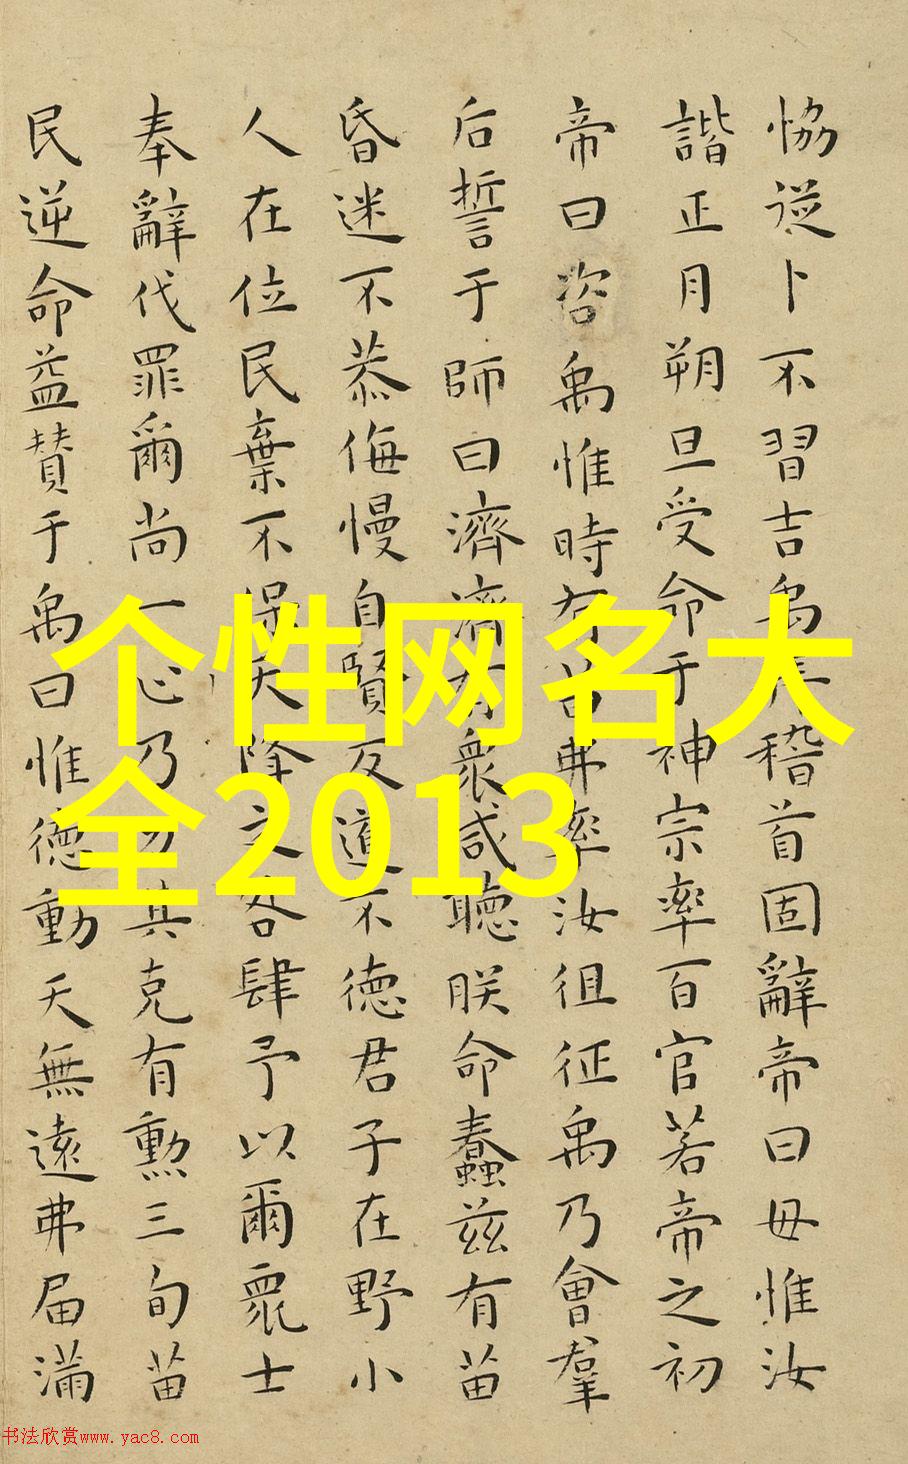 恊從卜不習吉禹拜稽首固辭帝曰毋惟汝
諧正月朔旦受命于神宗率百官若帝之初
帝曰咨禹惟時有苗弗率汝徂征禹乃會羣
后誓于師曰濟濟有衆咸聽朕命蠢茲有苗
昏迷不恭侮慢自賢反道不德君子在野小
人在位民棄不保天降之咎肆予以爾眾士
奉辭伐罪爾尚一心乃力其克有勲三旬苗
民逆命益贊于禹曰惟德動天無遠弗届滿
个性网名大
全2013
书法欣赏www.yac8.com